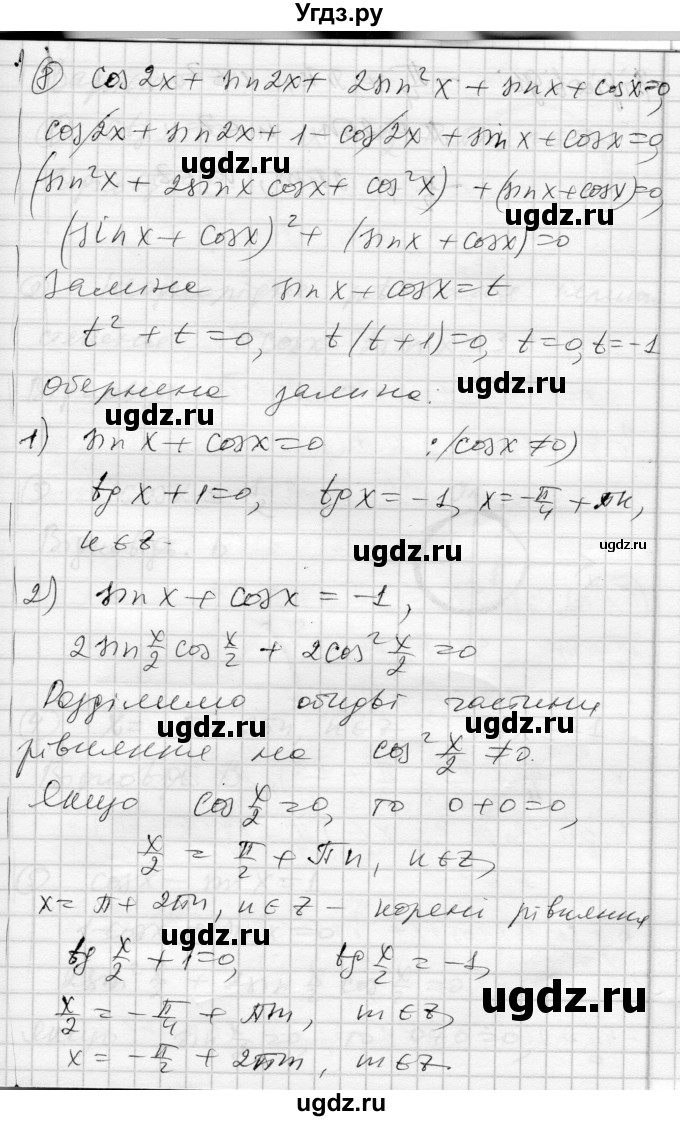 Угдз.ру
8) cos2x + sin2x + 2sin²x + sinx + cosx = 0,
cos2x + sin2x + 1 - cos2x + sinx + cosx = 0,
ugdz.ru
(sin²x + 2sinx cosx + cos²x) + (sinx + cosx) = 0,
ugdz.ru
(sinx + cosx)² + (sinx + cosx) = 0
Заміна sinx + cosx = t
t² + t = 0, t(t+1) = 0, t = 0, t = -1
ugdz.ru
обернена заміна:
ugdz.ru
1) sinx + cosx = 0 :(cosx ≠ 0)
tgx + 1 = 0, tgx = -1, x = -π/4 + πn,
n ∈ Z.
ugdz.ru
ugdz.ru
2) sinx + cosx = -1,
ugdz.ru
2sin x/2 cos x/2 + 2cos² x/2 = 0
Розділимо обидві частини
ugdz.ru
ugdz.ru
рівняння на cos² x/2 ≠ 0.
Якщо cos x/2 = 0, то 0 + 0 = 0,
ugdz.ru
x/2 = π/2 + πn, n ∈ Z,
ugdz.ru
x = π + 2πn, n ∈ Z - корені рівняння
ugdz.ru
tg x/2 + 1 = 0, tg x/2 = -1,
ugdz.ru
x/2 = -π/4 + πm, m ∈ Z,
x = -π/2 + 2πm, m ∈ Z.
ugdz.ru
ugdz.ru